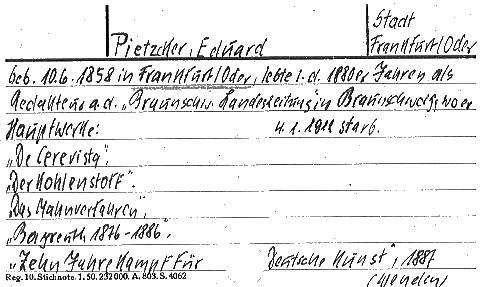 Stadt
Pietzcker, Eduard Frankfurt/Oder
geb. 10.6.1858 in Frankfurt/Oder, lebte i.d. 1880er Jahren als
Redakteur a.d. „Braunschw. Landeszeitung" in Braunschweig, wo er
Hauptwerke: 4.1.1911 starb.
„De Cerevista".
„Der Kohlenstoff".
„Das Mahnverfahren",
„Bayreuth 1876-1886".
„Zehn Jahre Kampf für Deutsche Kunst", 1887
Reg. 10. Stichnote. 1. 50. 232000. A. 803. S. 4062